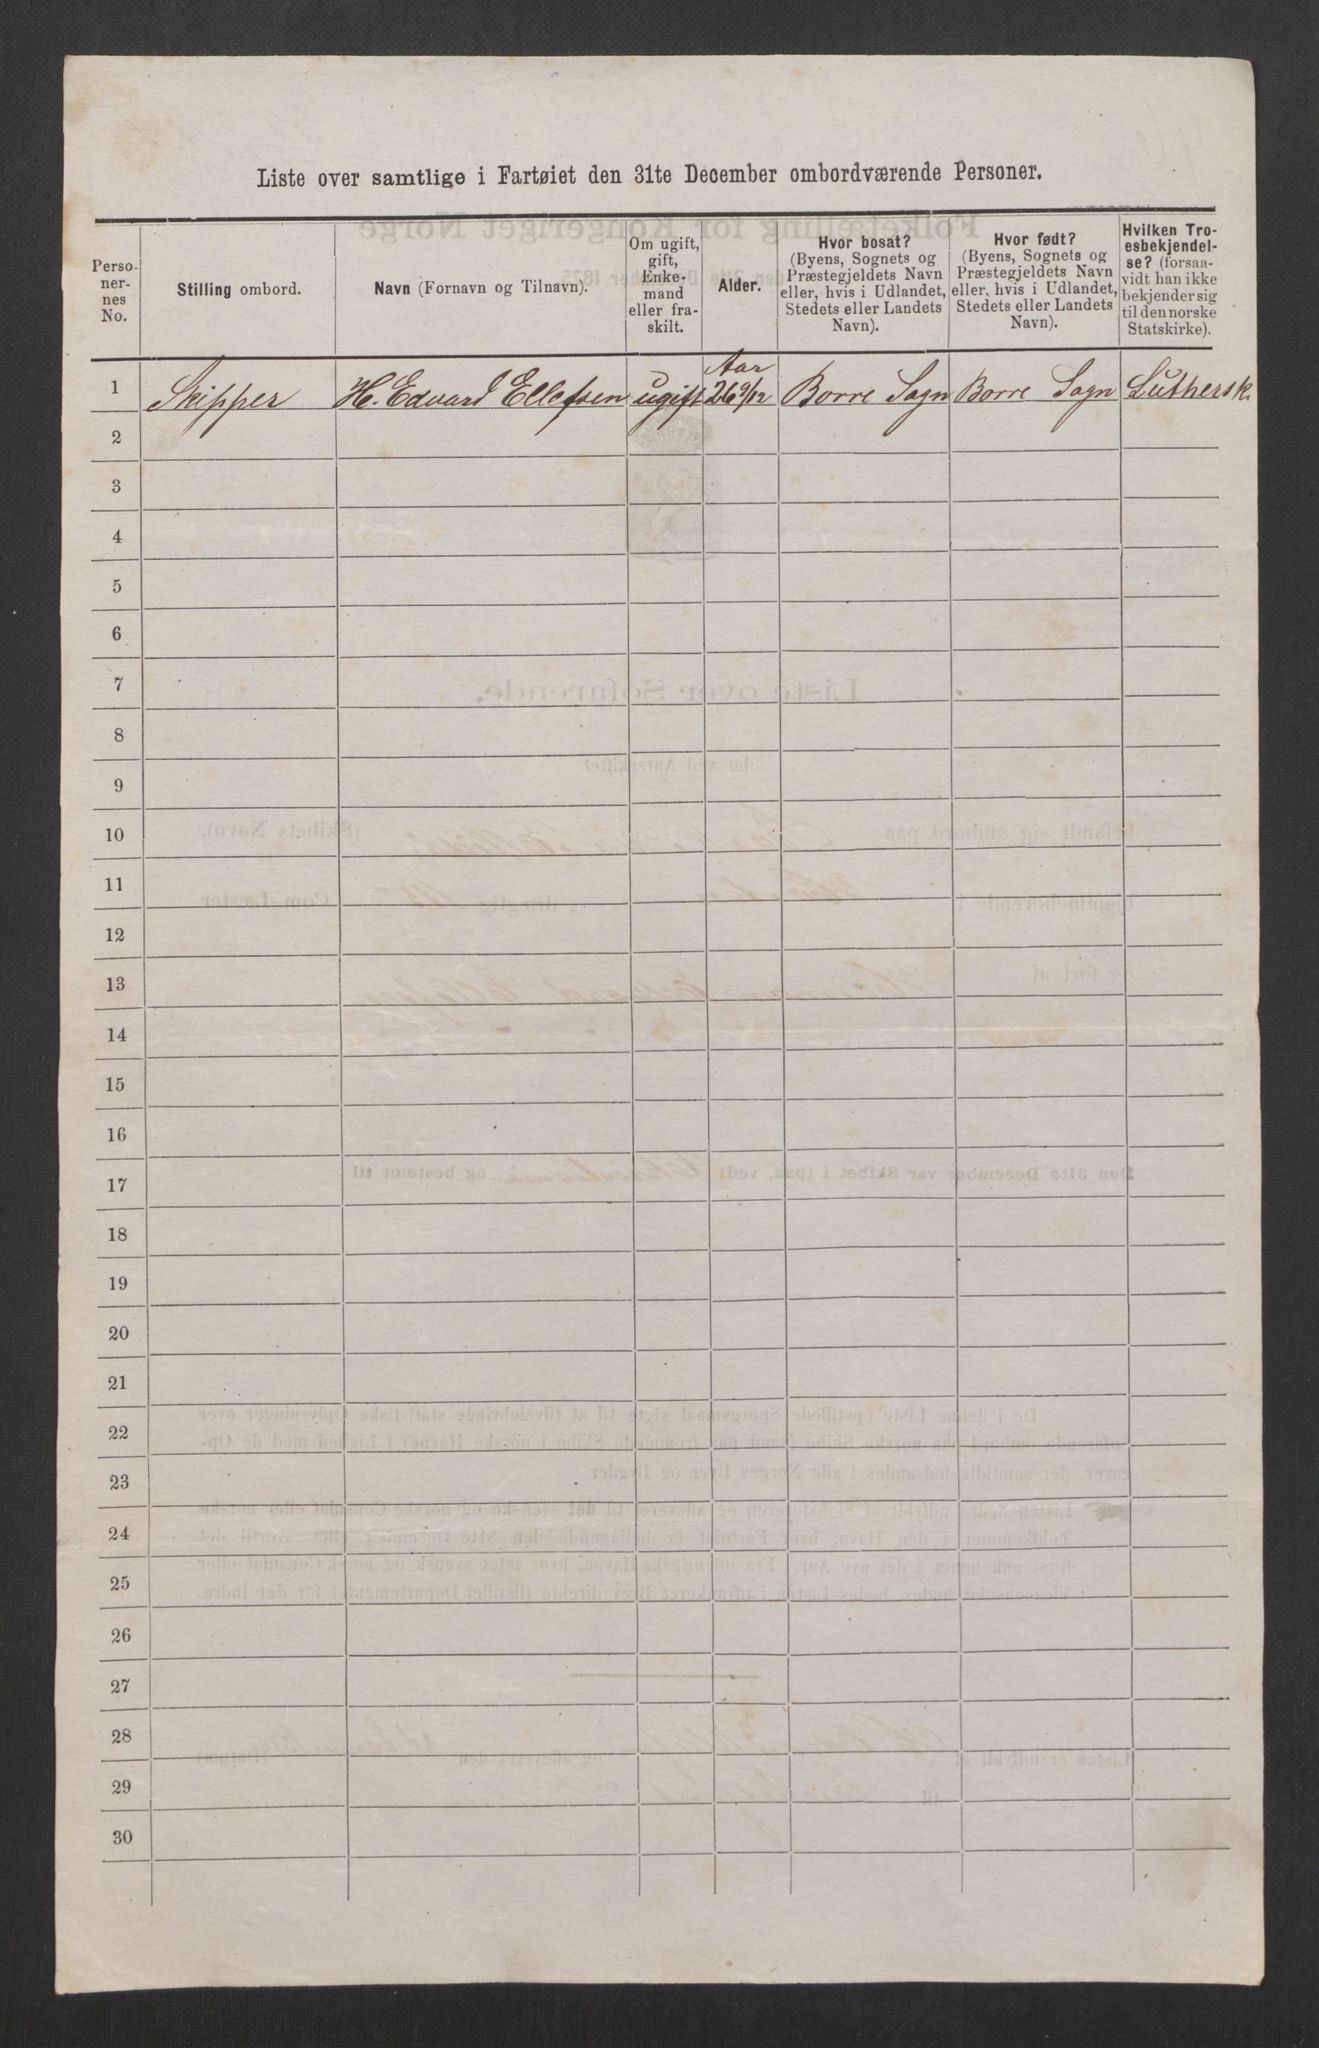 Liste over samtlige i Fartøiet den 31te December ombordværende Personer.
Perso-
ner-
nes
No.
Stilling ombord.
Navn (Fornavn og Tilnavn).
Om ugift,
gift,
Enke-
mand
eller fra-
skilt.
Alder.
Hvor bosat?
(Byens, Sognets og
Præstegjeldets Navn
eller, hvis i Udlandet,
Stedets eller Landets
Navn).
Hvor født?
(Byens, Sognets og
Præstegjeldets Navn
eller, hvis i Udlandet,
Stedets eller Landets
Navn).
Hvilken Tro-
esbekjendel-
se? (forsaa-
vidt han ikke
bekjender sig
til den norske
Statskirke).
Aar
1 Skipper H. Edvard Ellefsen ugift 26 9/12 Borre Sogn Borre Sogn Luthersk.
2
3
4
5
6
7
8
9
10
11
12
13
14
15
16
17
18
19
20
21
22
23
24
25
26
27
28
29
30